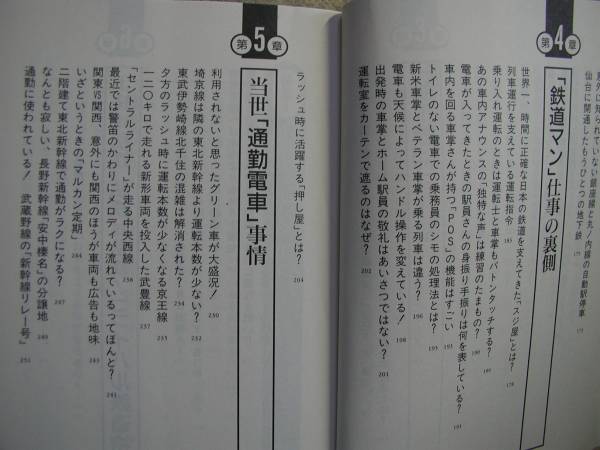 意外に知られていない銀座線と丸ノ内線の自動駅停車 175
仙台に開通したもうひとつの地下鉄
第4章
「鉄道マン」仕事の裏側
世界一、時間に正確な日本の鉄道を支えてきた「スジ屋」とは? 178
列車運行を支えている運転指令 185
乗り入れ運転のときは運転士と車掌もバトンタッチする?
あの車内アナウンスの「独特な声」は練習のたまもの? 190
電車が入ってきたときの駅員さんの身振り手振りは何を表している? 191
車内を回る車掌さんが持つ「POS」の機能はすごい 193
トイレのない電車での乗務員のシモの処理法とは? 195
新米車掌とベテラン車掌が乗る列車は違う? 196
電車も天候によってハンドル操作を変えている! 198
出発時の車掌とホーム駅員の敬礼はあいさつではない? 201
運転室をカーテンで遮るのはなぜ? 202
ラッシュ時に活躍する「押し屋」とは? 204
第5章
当世「通勤電車」事情
利用されないと思ったグリーン車が大盛況! 230
埼京線は隣の東北新幹線より運転本数が少ない?
東武伊勢崎線北千住の混雑は解消された? 234
夕方のラッシュ時に運転本数が少なくなる京王線
一二〇キロで走れる新形車両を投入した武豊線 237
「セントラルライナー」が走る中央西線 238
最近では警笛のかわりにメロディが流れているってほんと? 241
関東VS関西、意外にも関西のほうが車両も広告も地味
いざというときの「マルカン定期」 244
二階建て東北新幹線で通勤がラクになる? 247
なんとも寂しい、長野新幹線「安中榛名」の分譲地 249
通勤に使われている! 武蔵野線の「新幹線リレー号」 251